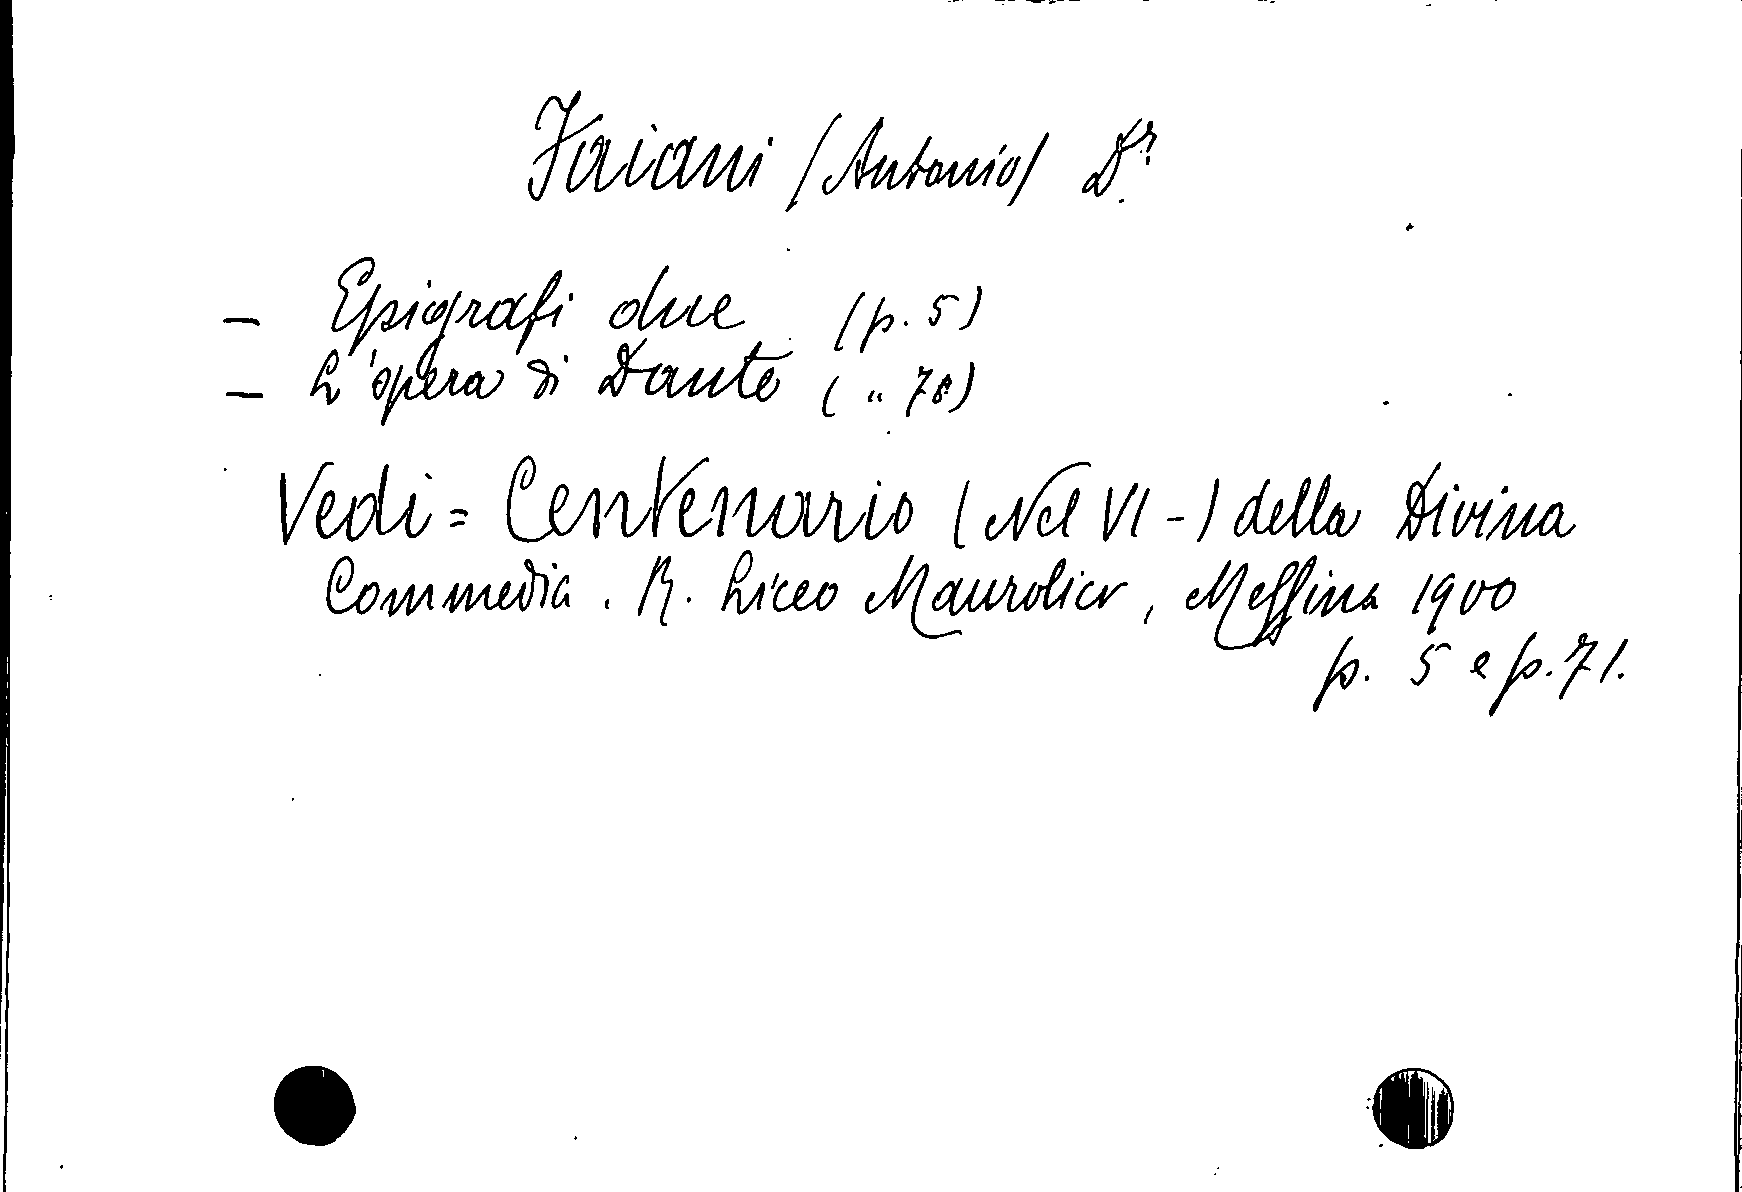 Faiani (Antonio) Dr.
– Epigrafi due (p. 5)
– L'opera di Dante ( " 78)
Vedi = Centenario (Nel VI -) della Divina
Commedia. R. Liceo Maurolico, Messina 1900
p. 5 e p. 71.